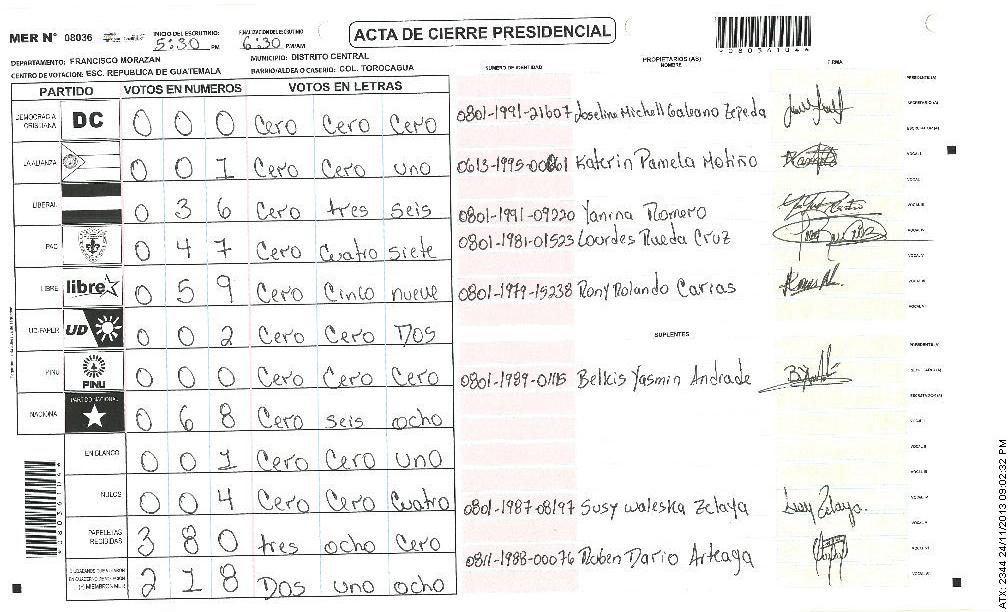 MER N° 08036 INICIO DEL ESCRUTINIO: 5:30 PM FINALIZACION DEL ESCRUTINIO 6:30 PM/AM
ACTA DE CIERRE PRESIDENCIAL
*08036104*
DEPARTAMENTO: FRANCISCO MORAZAN MUNICIPIO: DISTRITO CENTRAL
CENTRO DE VOTACION: ESC. REPUBLICA DE GUATEMALA BARRIO/ALDEA O CASERIO: COL. TOROCAGUA
PARTIDO VOTOS EN NUMEROS VOTOS EN LETRAS
DEMOCRACIA CRISTIANA DC 0 0 0 Cero Cero Cero
LA ALIANZA 0 0 1 Cero Cero uno
LIBERAL 0 3 6 Cero tres seis
PAC 0 4 7 Cero Cuatro siete
LIBRE libre 0 5 9 Cero Cinco nueve
UD-FAPER UD 0 0 2 Cero Cero Dos
PINU PINU 0 0 0 Cero Cero Cero
NACIONAL PARTIDO NACIONAL 0 6 8 Cero seis ocho
EN BLANCO 0 0 1 Cero Cero uno
NULOS 0 0 4 Cero Cero Cuatro
PAPELETAS RECIBIDAS 3 8 0 tres ocho Cero
2 1 8 Dos uno ocho
NUMERO DE IDENTIDAD PROPIETARIOS (AS) NOMBRE FIRMA
0801-1991-21607 Joseline Michell Galeano Zepeda
0613-1995-00061 Katerin Pamela Motiño
0801-1991-09220 Yanina Romero
0801-1981-01523 Lourdes Rueda Cruz
0801-1979-15238 Rony Rolando Carias
SUPLENTES
Belkis Yasmin Andrade
0801-1987-08197 Susy Waleska Zelaya
Ruben Dario Arteaga
PRESIDENTE (A)
SECRETARIO (A)
ESCRUTADOR (A)
VOCAL I
VOCAL II
VOCAL III
VOCAL IV
VOCAL V
*08036104*
ATX: 2344 24/11/2013 09:02:32 PM